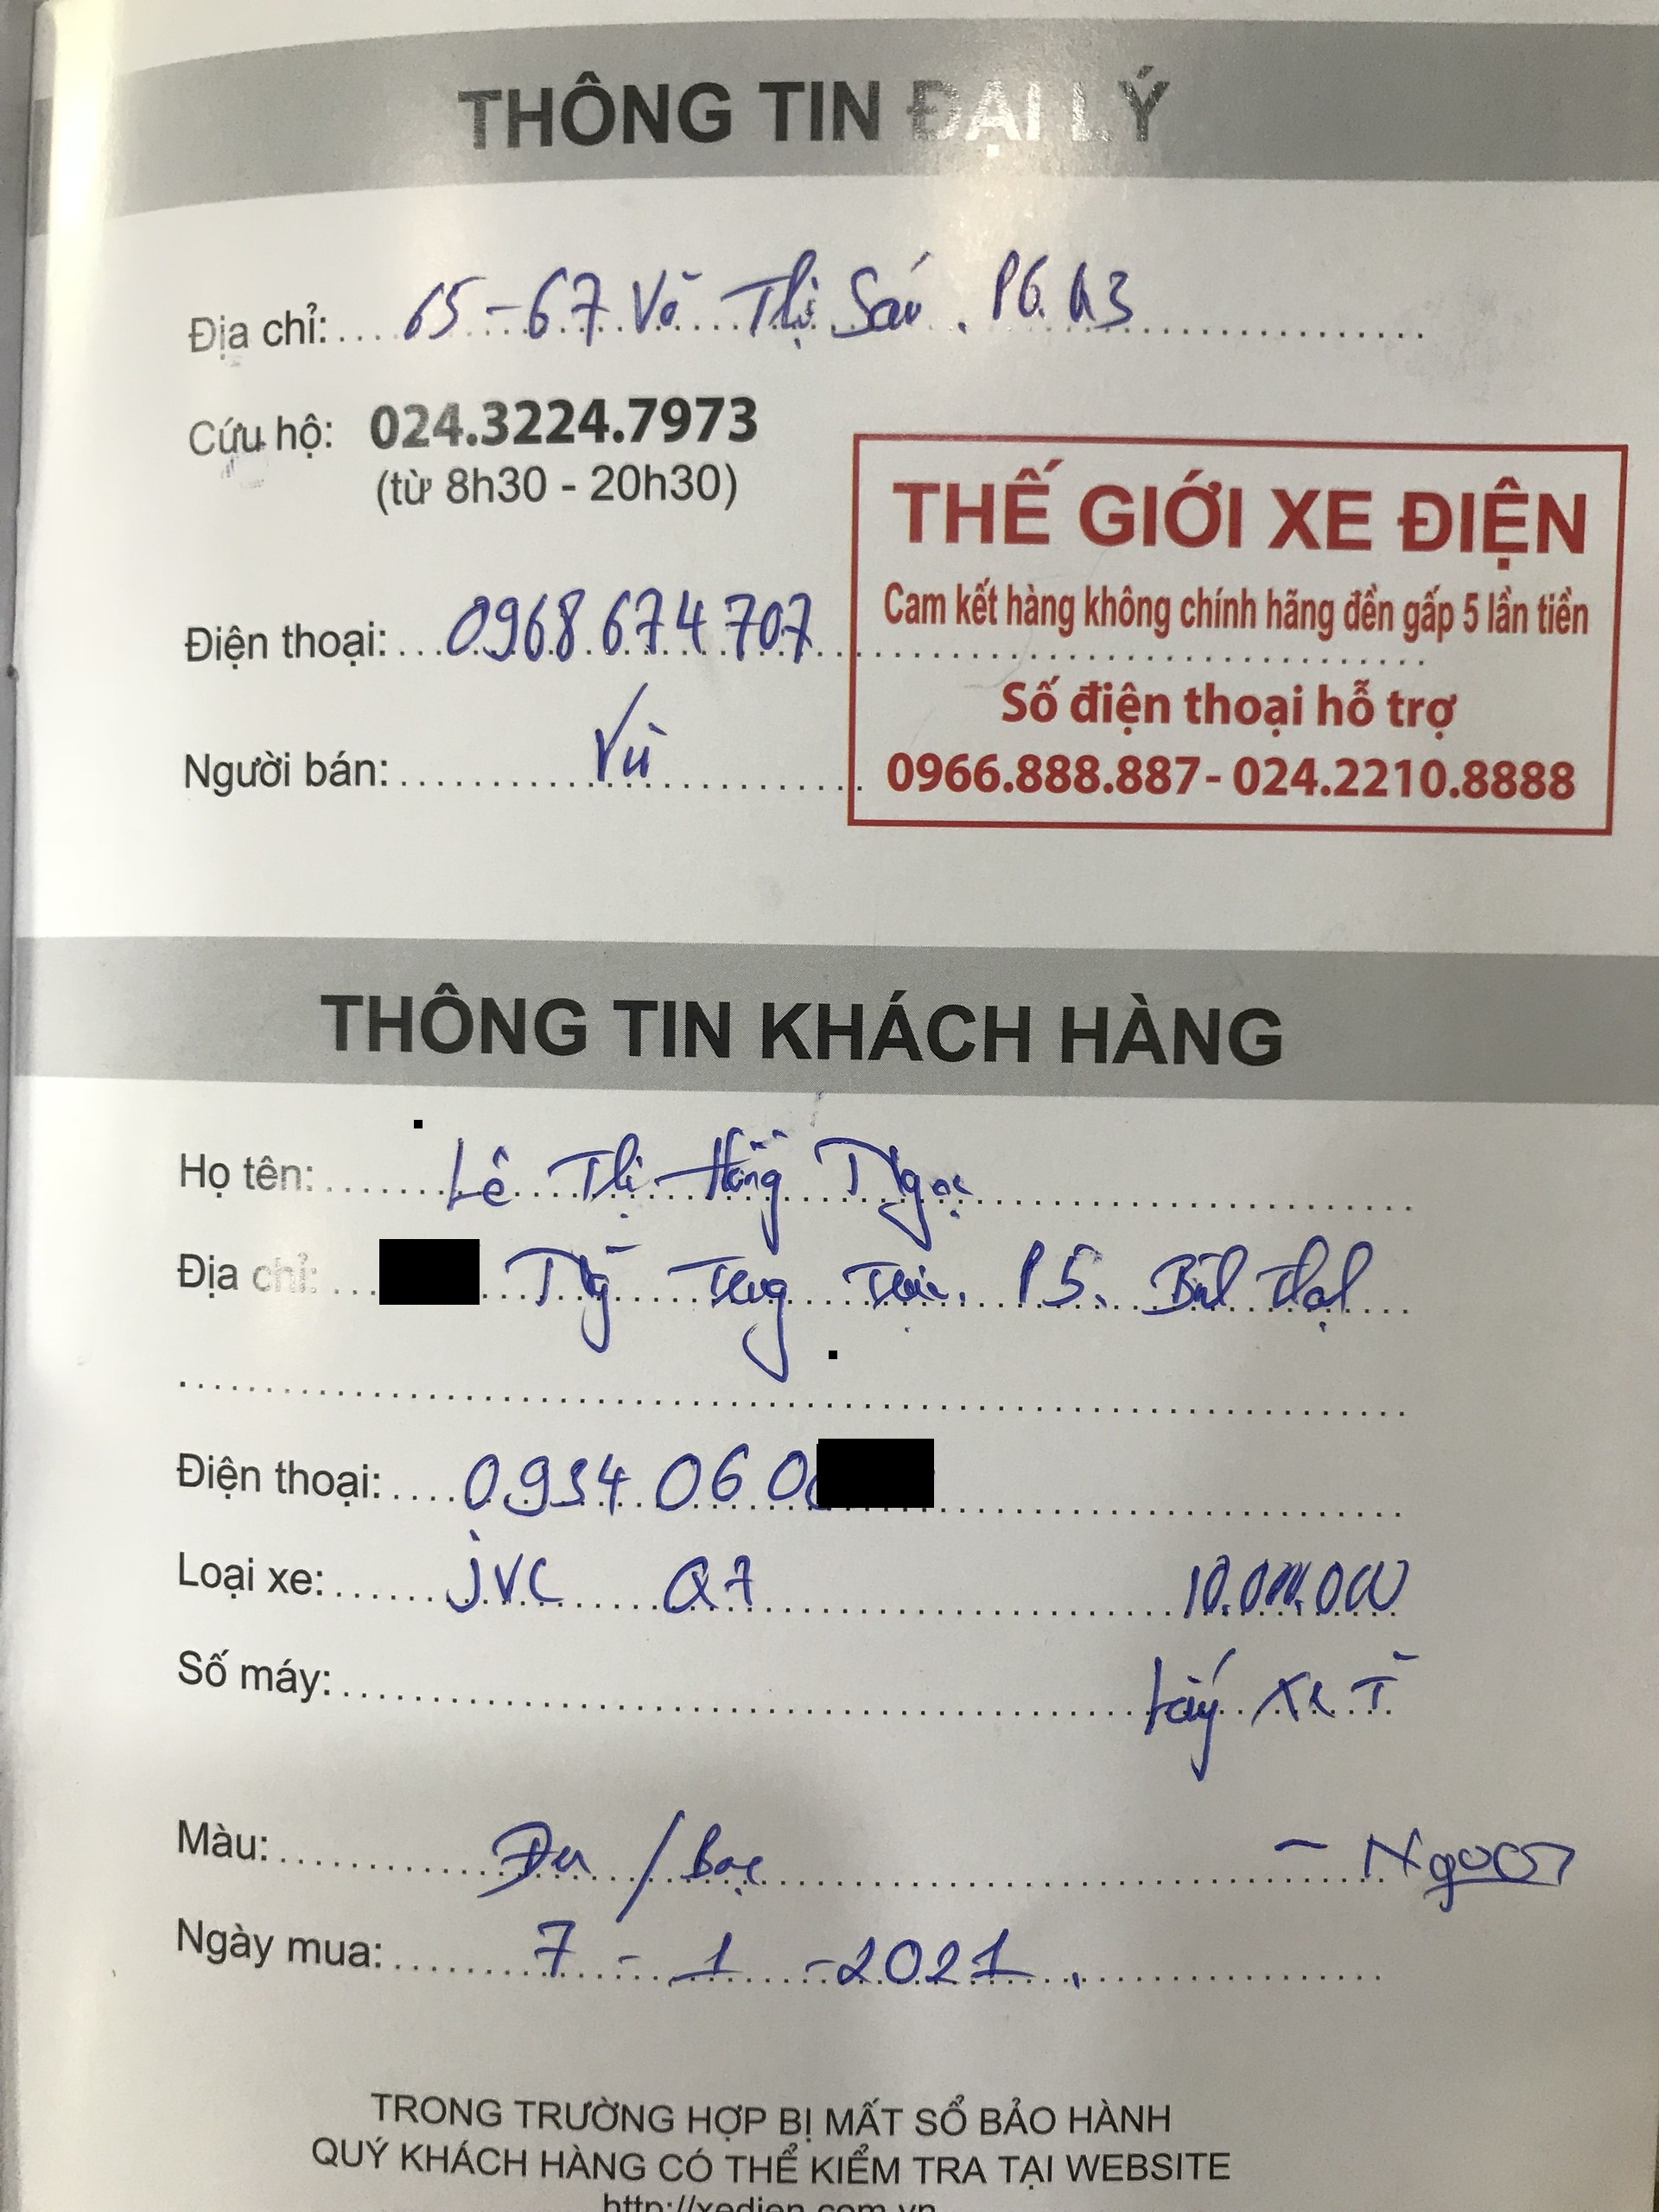 THÔNG TIN ĐẠI LÝ
Địa chỉ: 65-67 Võ Thị Sáu. P6. Q3
Cứu hộ: 024.3224.7973
(từ 8h30 - 20h30)
THẾ GIỚI XE ĐIỆN
Cam kết hàng không chính hãng đền gấp 5 lần tiền
Số điện thoại hỗ trợ
0966.888.887- 024.2210.8888
Điện thoại: 0968 674 707
Người bán: Vũ
THÔNG TIN KHÁCH HÀNG
Họ tên: Lê Thị Hồng Ngọc
Địa chỉ: P5. Bình Thạnh
Điện thoại: 0934 06 0
Loại xe: JVC Q7 10.000.000
Số máy: Lấy xe
Màu: Đen / Bạc
Ngày mua: 7 - 1 - 2021.
TRONG TRƯỜNG HỢP BỊ MẤT SỔ BẢO HÀNH
QUÝ KHÁCH HÀNG CÓ THỂ KIỂM TRA TẠI WEBSITE
http://xedien.com.vn